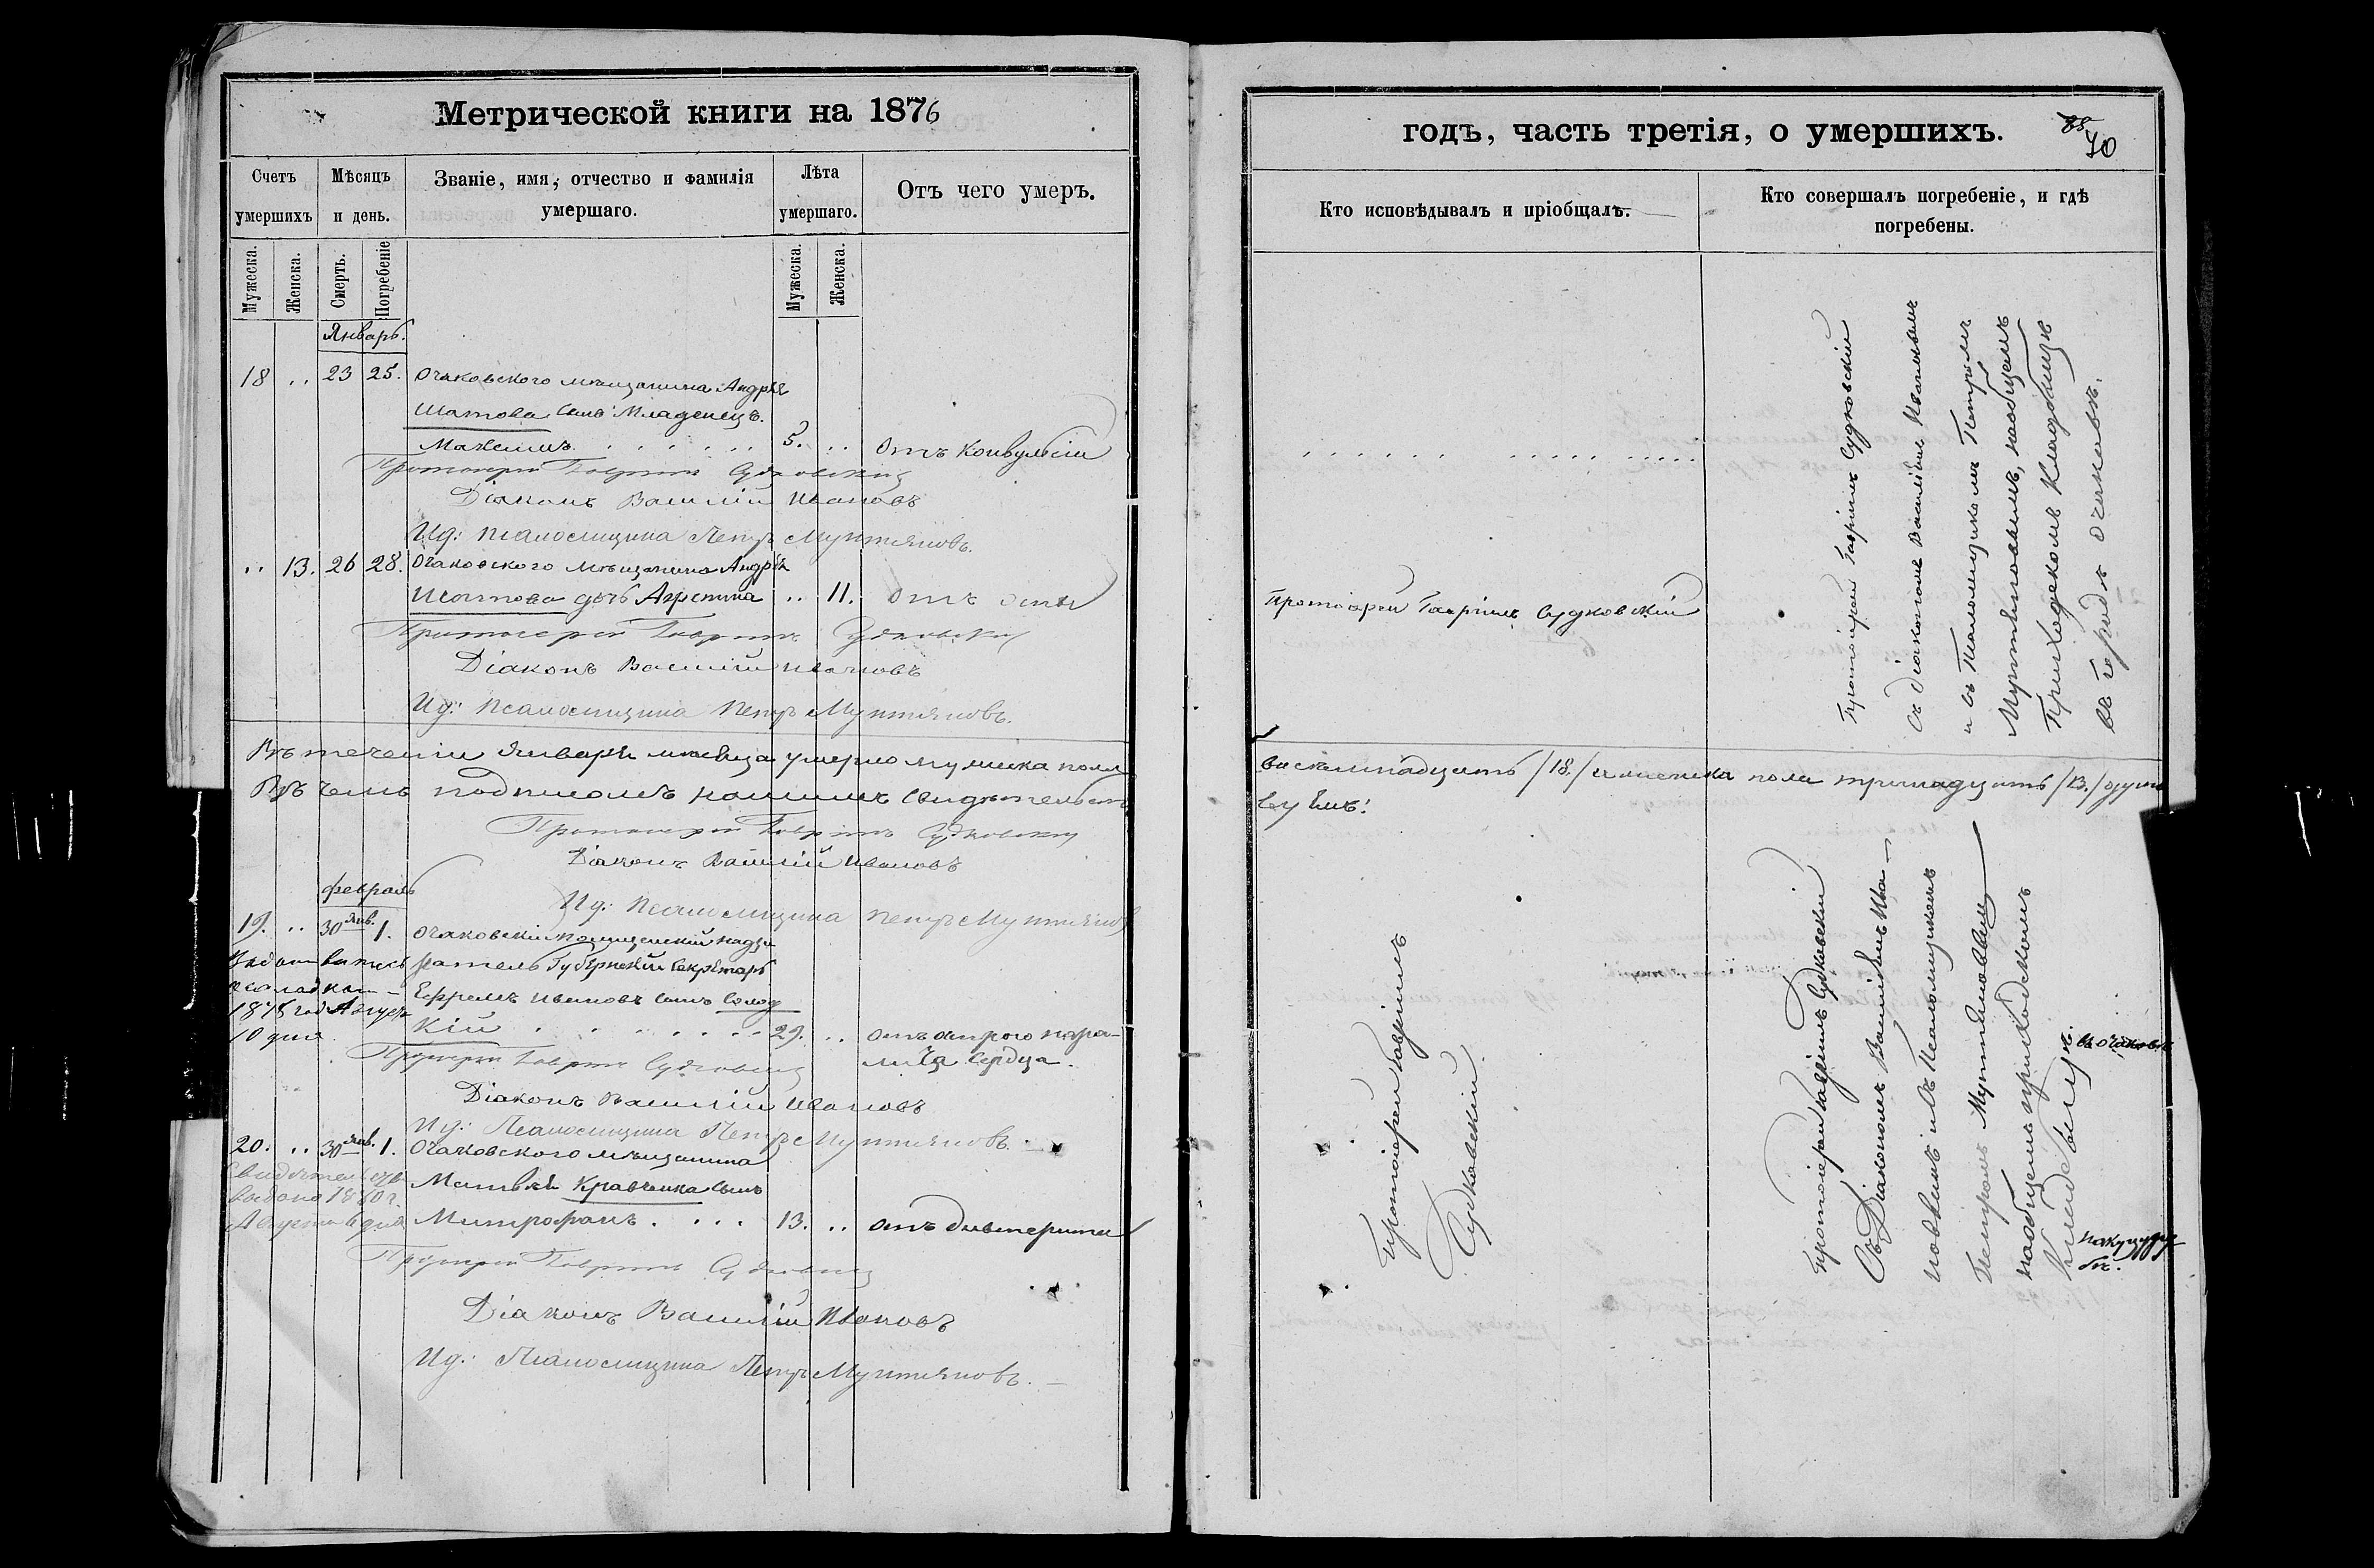 Метрической книги на 1876
Счетъ умершихъ
Мѣсяцъ и день.
Званіе, имя, отчество и фамилія умершаго.
Лѣта умершаго.
Отъ чего умеръ.
Мужеска.
Женска.
Смерть.
Погребеніе
Мужеска.
Женска.
Январь.
18 .. 23 25. Очаковскаго мѣщанина Андрея
Шатова сынъ Младенецъ
Максимъ . . . . . . 5. .. Отъ конвульсіи
Протоіерей Гавріилъ Судковскій
Діаконъ Василій Ивановъ
Ид: Псаломщика Петръ Мунтяновъ.
.. 13. 26 28. Очаковского мѣщанина Андрея
Шатова дочь Агрепина .. 11. Отъ оспы
Протоіерей Гавріилъ Судковскій
Діаконъ Василій Ивановъ
Ид: Псаломщика Петръ Мунтяновъ.
Въ теченіи Января мѣсяца умерло мужеска пола
Въ чемъ подписомъ нашимъ свидѣтельст
Протоіерей Гавріилъ Судковскій
Діаконъ Василій Ивановъ
Ид: Псаломщика Петръ Мунтяновъ
Февраль
19. .. 30 янв. 1. Очаковскій полицейскій надзи
ратель Губернскій Секретарь
Ефремъ Ивановъ сынъ Солод
кій . . . . . . . 29. .. отъ остраго пара-
лича сердца.
1878 год Августа
10 дня
Протоіерей Гавріилъ Судковскій
Діаконъ Василій Ивановъ
Ид: Псаломщика Петръ Мунтяновъ.
20. .. 30 янв. 1. Очаковского мѣщанина
Матвѣя Кравченка сынъ
Митрофанъ . . . . 13. .. отъ дифтерита
Свидѣтельство
выдано 1880 г.
Августа 6 дня
Протоіерей Гавріилъ Судковскій
Діаконъ Василій Ивановъ
Ид: Псаломщика Петръ Мунтяновъ.
годъ, часть третія, о умершихъ.
85
70
Кто исповѣдывалъ и пріобщалъ.
Кто совершалъ погребеніе, и гдѣ погребены.
Протоіерей Гавріилъ Судковскій
съ діакономъ Василіемъ Ивановымъ
и съ Псаломщикомъ Петромъ
Мунтяновымъ, на общемъ
Приходскомъ кладбищѣ
въ городѣ Очаковѣ.
Протоіерей Гавріилъ Судковскій
восемнадцать /18./ и женска пола тринадцать /13./ душъ
вуемъ:
Протоіерей Гавріилъ
Судковскій
Протоіерей Гавріилъ Судковскій
съ Діакономъ Василіемъ Ива-
новымъ и съ Псаломщикомъ
Петромъ Мунтяновымъ
на общемъ приходскомъ
кладбищѣ
въ Очаковѣ